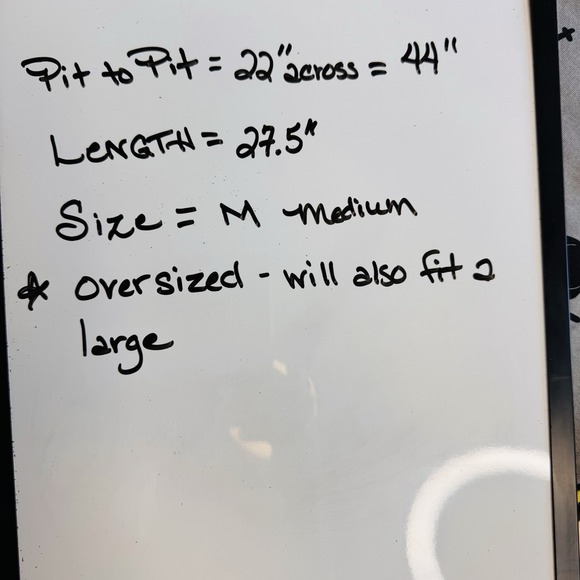 Pit to Pit = 22" across = 44"
LENGTH = 27.5"
Size = M medium
* oversized - will also fit a
large